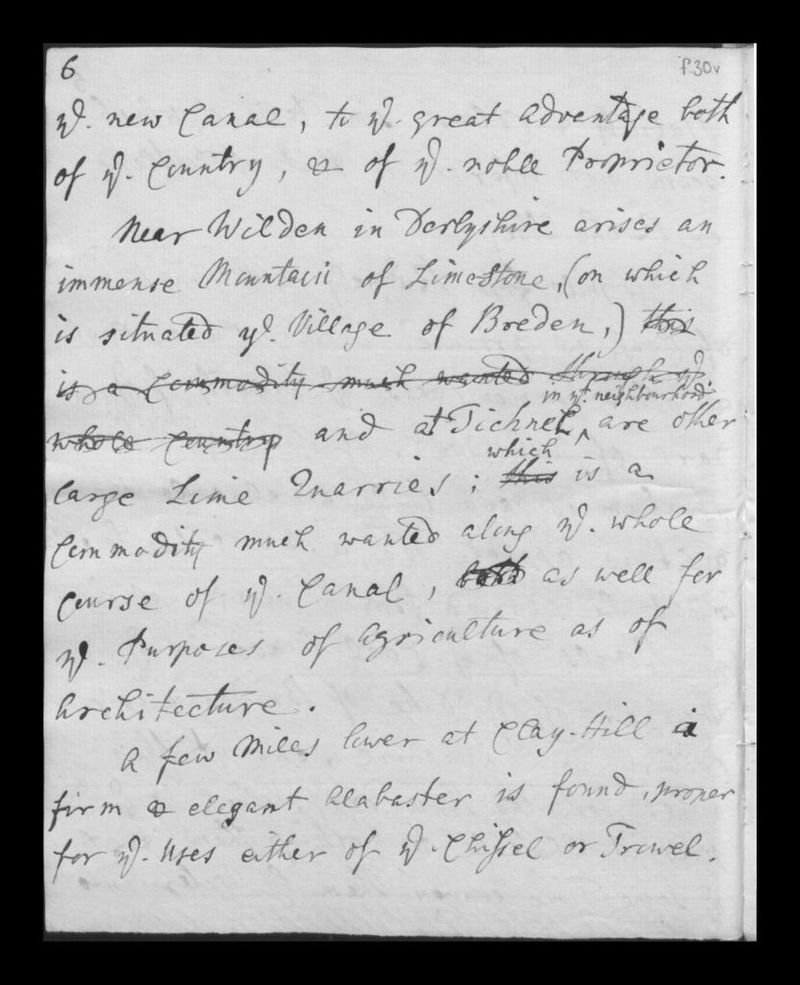 6
f.30v
ye. new Canal, to ye. great Advantage both
of ye. Country, & of ye. noble Proprietor.
Near Wilden in Derbyshire arises an
immense Mountain of Limestone, (on which
is situated ye. Village of Breden,) this
is a Commodity much wanted through ye.
in ye. neighbourhood
whole Country and at Tichnel, are other
which
large Lime Quarries; this is a
Commodity much wanted along ye. whole
course of ye. Canal, both as well for
ye. Purposes of Agriculture as of
Architecture.
A few Miles lower at Clay-Hill a
firm & elegant Alabaster is found, proper
for ye. Uses either of ye. Chissel or Trowel.